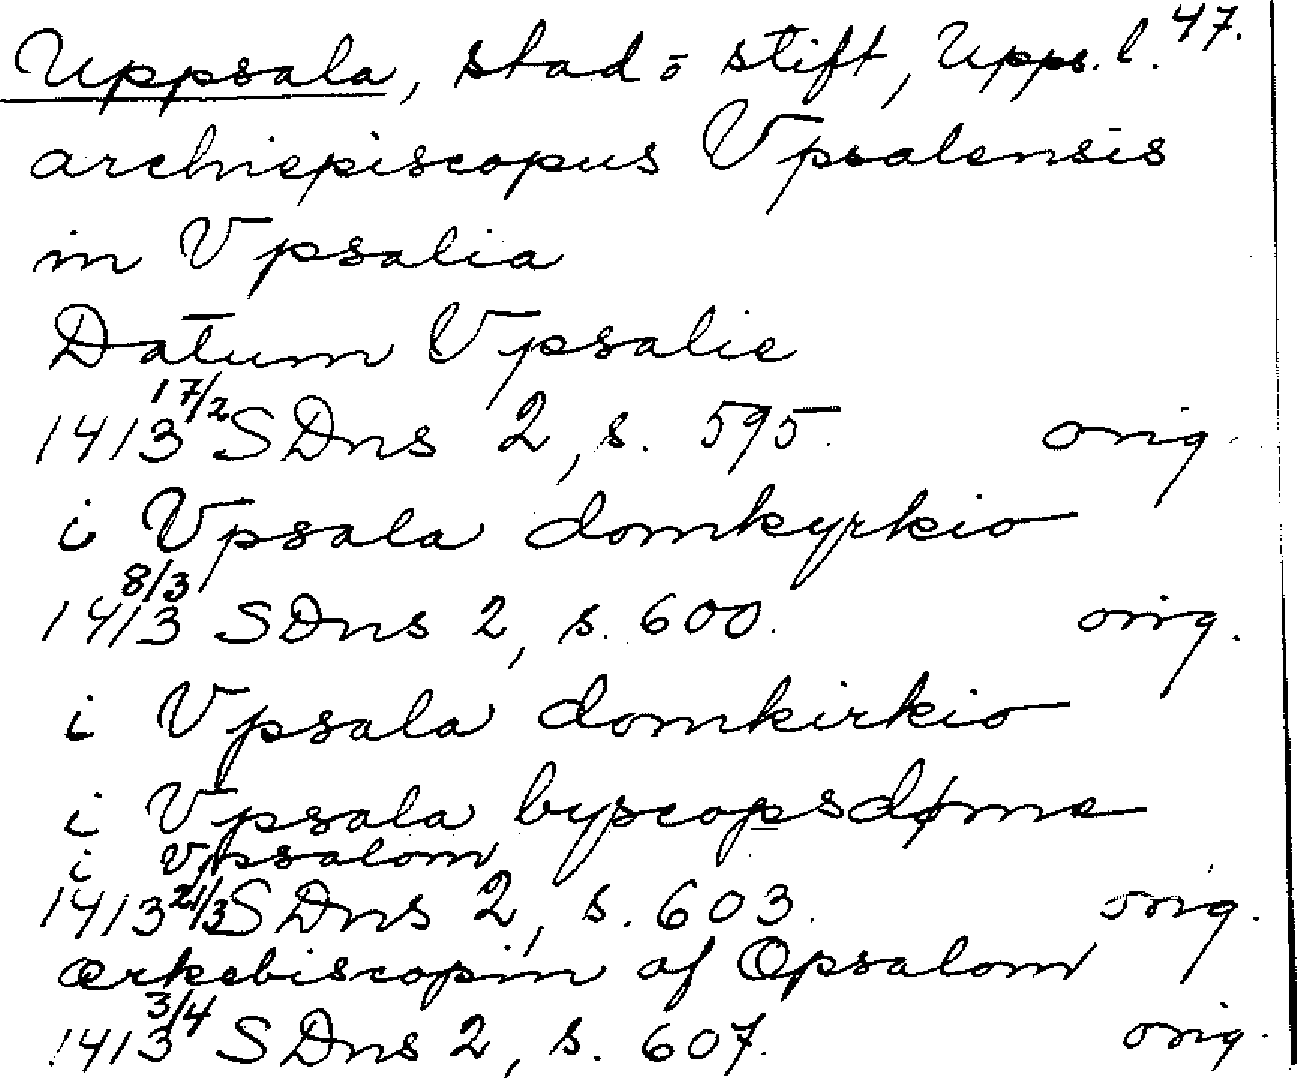 Uppsala, stad o stift, Upps. l. 47.
archiepiscopus Vpsalensis
in Vpsalia
Datum Vpsalie
1413 17/2 SDns 2, s. 595. orig.
i Vpsala domkyrkio
1413 8/3 SDns 2, s. 600. orig.
i Vpsala domkirkio
i Vpsala byscopsdøme
i Vpsalom
1413 21/3 SDns 2, s. 603. orig.
ærkebiscopin af Opsalom
1413 3/4 SDns 2, s. 607. orig.